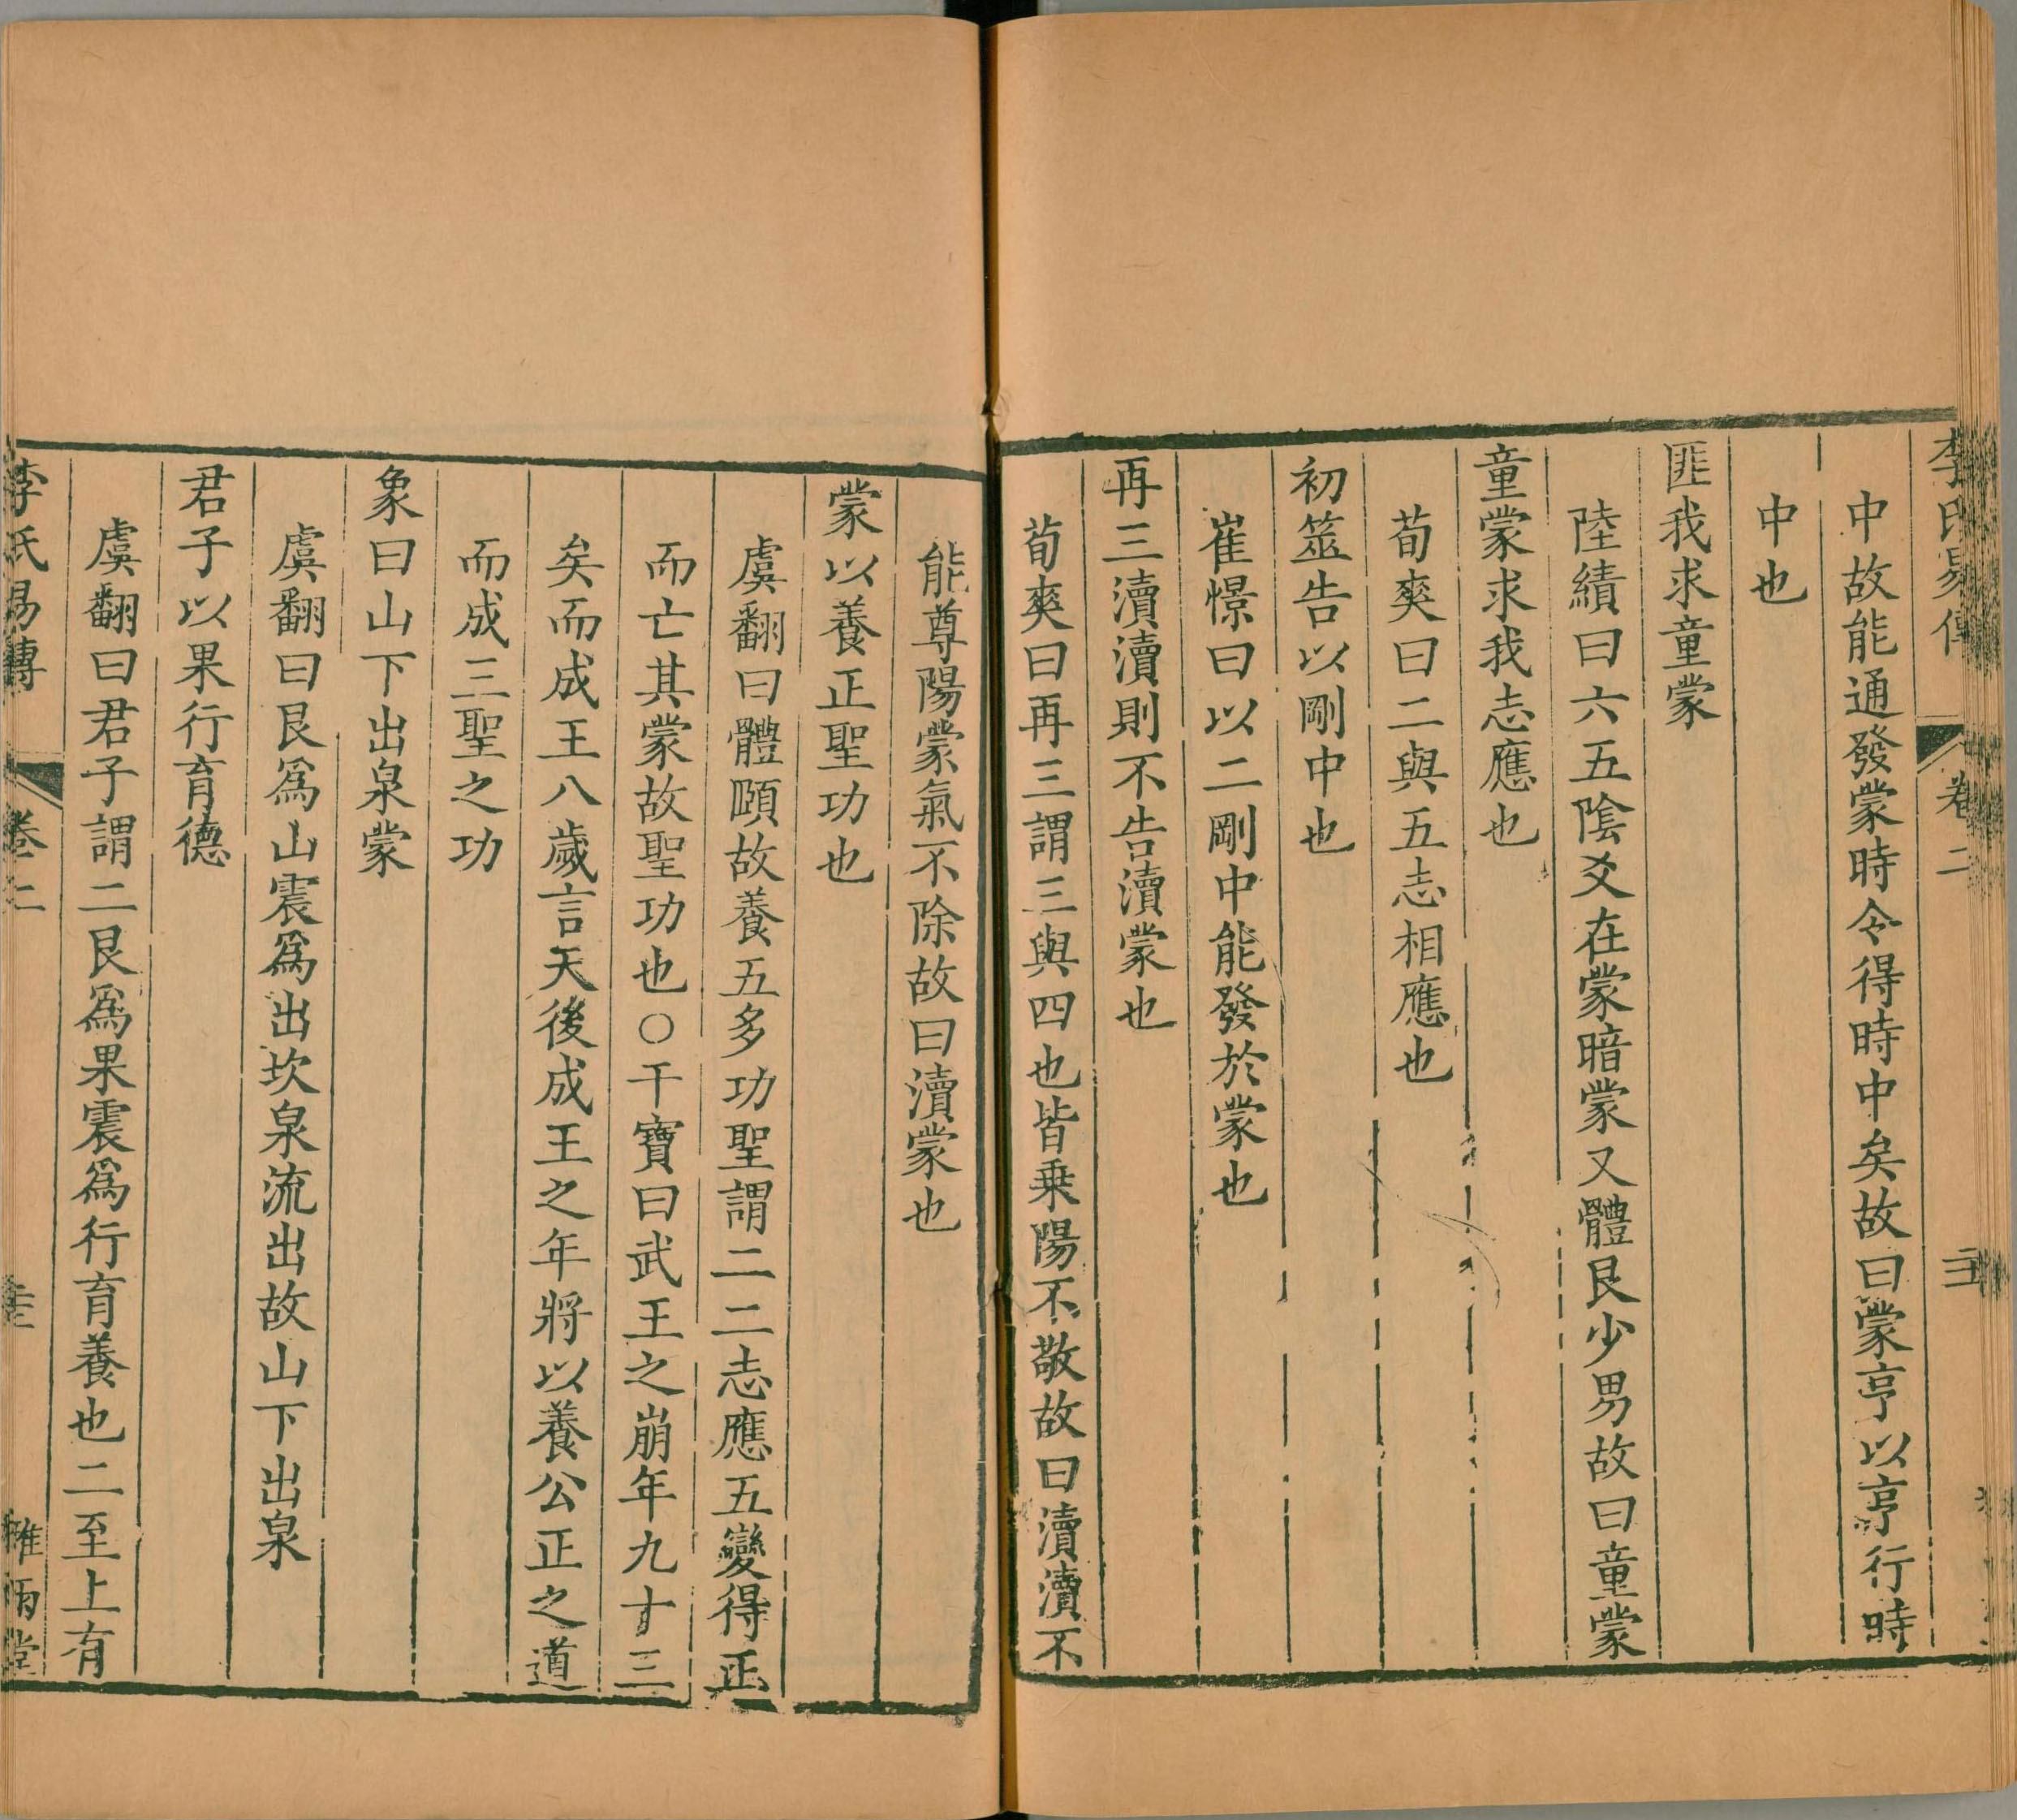 李氏易傳 卷二
中故能通發蒙時令得時中矣故曰蒙亨以亨行時
中也
匪我求童蒙
陸績曰六五陰爻在蒙暗蒙又體艮少男故曰童蒙
童蒙求我志應也
荀爽曰二與五志相應也
初筮告以剛中也
崔憬曰以二剛中能發於蒙也
再三瀆瀆則不告瀆蒙也
荀爽曰再三謂三與四也皆乗陽不敬故曰瀆瀆不
能尊陽蒙氣不除故曰瀆蒙也
蒙以養正聖功也
虞翻曰體頤故養五多功聖謂二二志應五變得正
而亡其蒙故聖功也○干寶曰武王之崩年九十三
矣而成王八歲言天後成王之年將以養公正之道
而成三聖之功
象曰山下出泉蒙
虞翻曰艮爲山震爲出坎泉流出故山下出泉
君子以果行育德
虞翻曰君子謂二艮爲果震爲行育養也二至上有
李氏易傳 卷二 雅雨堂